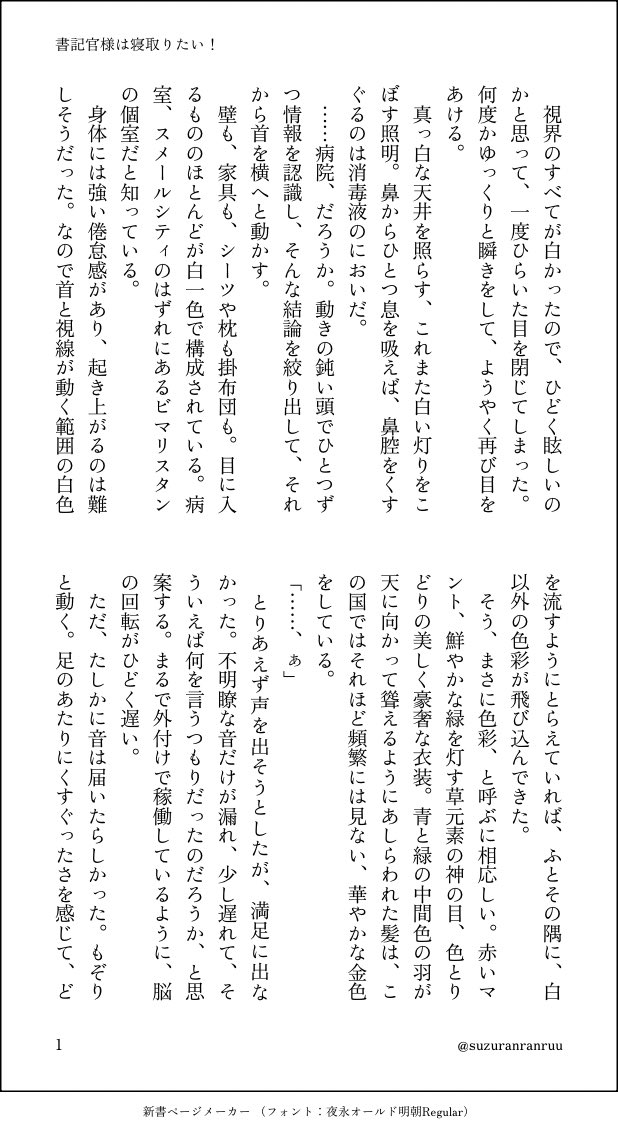 書記官様は寝取りたい！
　視界のすべてが白かったので、ひどく眩しいの
かと思って、一度ひらいた目を閉じてしまった。
何度かゆっくりと瞬きをして、ようやく再び目を
あける。
　真っ白な天井を照らす、これまた白い灯りをこ
ぼす照明。鼻からひとつ息を吸えば、鼻腔をくす
ぐるのは消毒液のにおいだ。
　……病院、だろうか。動きの鈍い頭でひとつず
つ情報を認識し、そんな結論を絞り出して、それ
から首を横へと動かす。
　壁も、家具も、シーツや枕も掛布団も。目に入
るもののほとんどが白一色で構成されている。病
室、スメールシティのはずれにあるビマリスタン
の個室だと知っている。
　身体には強い倦怠感があり、起き上がるのは難
しそうだった。なので首と視線が動く範囲の白色
を流すようにとらえていれば、ふとその隅に、白
以外の色彩が飛び込んできた。
　そう、まさに色彩、と呼ぶに相応しい。赤いマ
ント、鮮やかな緑を灯す草元素の神の目、色とり
どりの美しく豪奢な衣装。青と緑の中間色の羽が
天に向かって聳えるようにあしらわれた髪は、こ
の国ではそれほど頻繁には見ない、華やかな金色
をしている。
「……、ぁ」
　とりあえず声を出そうとしたが、満足に出な
かった。不明瞭な音だけが漏れ、少し遅れて、そ
ういえば何を言うつもりだったのだろうか、と思
案する。まるで外付けで稼働しているように、脳
の回転がひどく遅い。
　ただ、たしかに音は届いたらしかった。もぞり
と動く。足のあたりにくすぐったさを感じて、ど
1
@suzuranranruu
新書ページメーカー（フォント：夜永オールド明朝Regular）